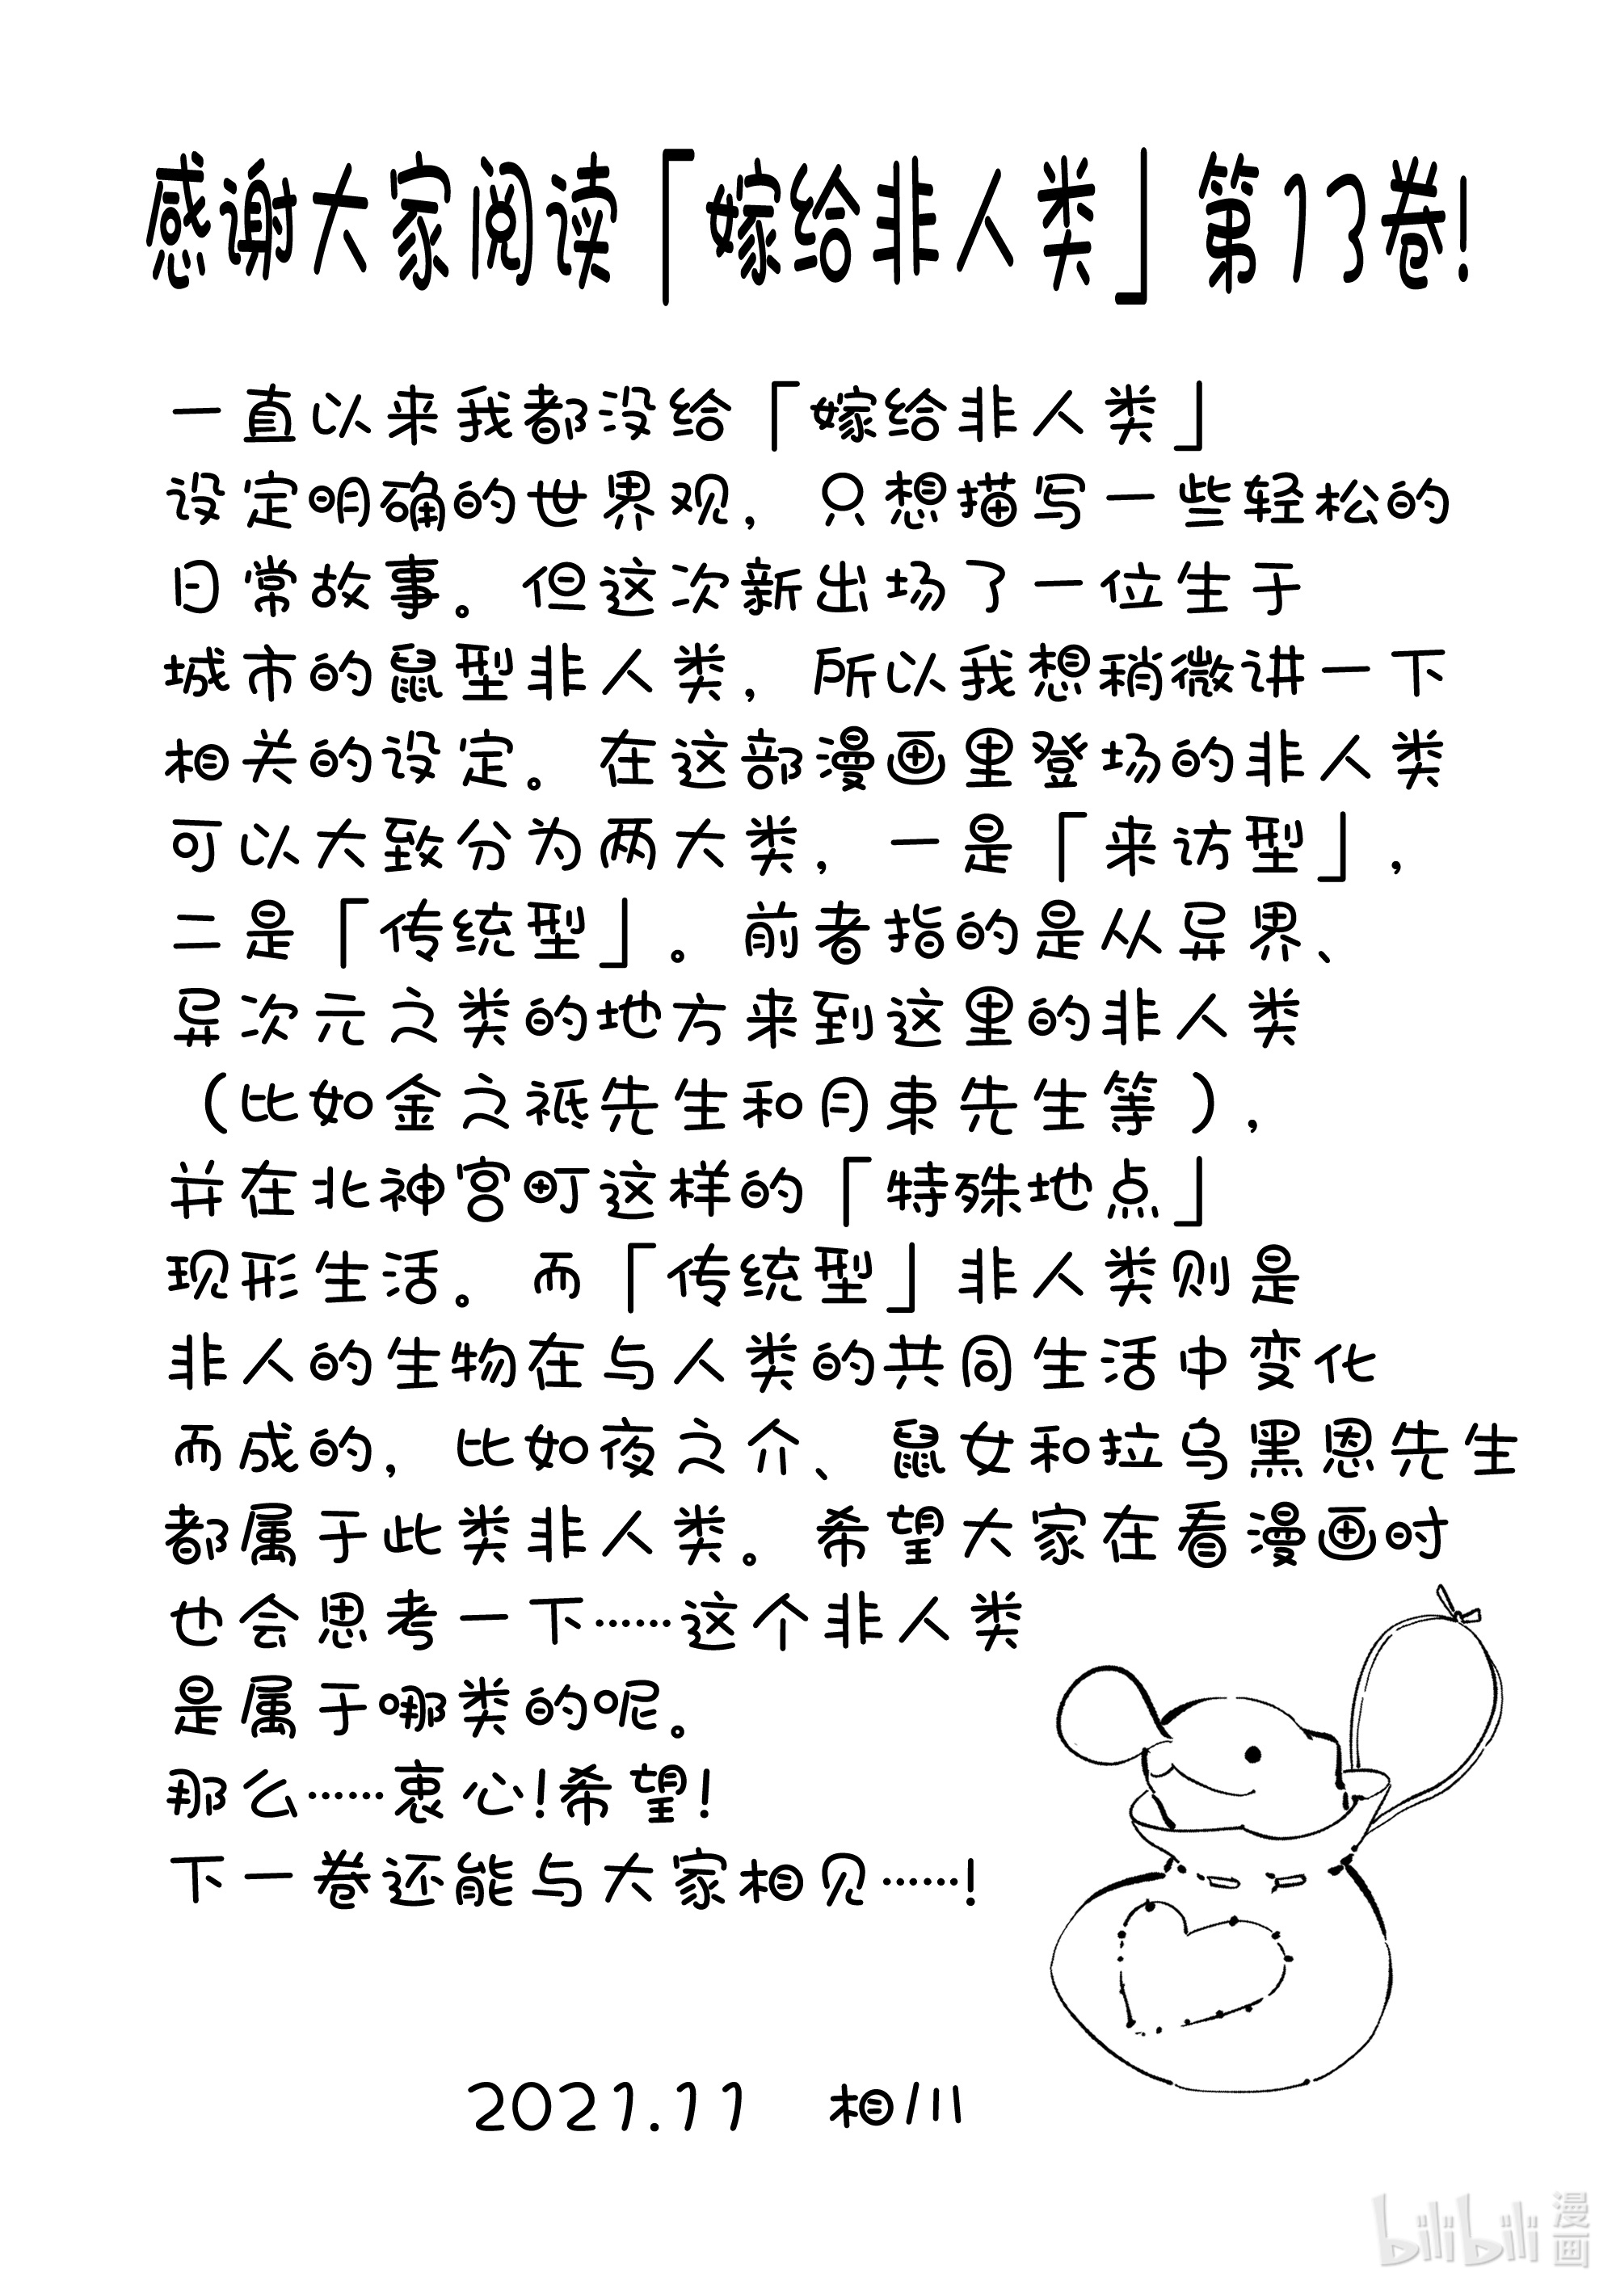 感谢大家阅读「嫁给非人类」第13卷!
一直以来我都没给「嫁给非人类」
设定明确的世界观，只想描写一些轻松的
日常故事。但这次新出场了一位生于
城市的鼠型非人类，所以我想稍微讲一下
相关的设定。在这部漫画里登场的非人类
可以大致分为两大类，一是「来访型」，
二是「传统型」。前者指的是从异界、
异次元之类的地方来到这里的非人类
（比如金之祗先生和月束先生等），
并在北神宫町这样的「特殊地点」
现形生活。而「传统型」非人类则是
非人的生物在与人类的共同生活中变化
而成的，比如夜之介、鼠女和拉乌黑恩先生
都属于此类非人类。希望大家在看漫画时
也会思考一下……这个非人类
是属于哪类的呢。
那么……衷心!希望!
下一卷还能与大家相见……!
2021.11 相川
bilibili 漫画